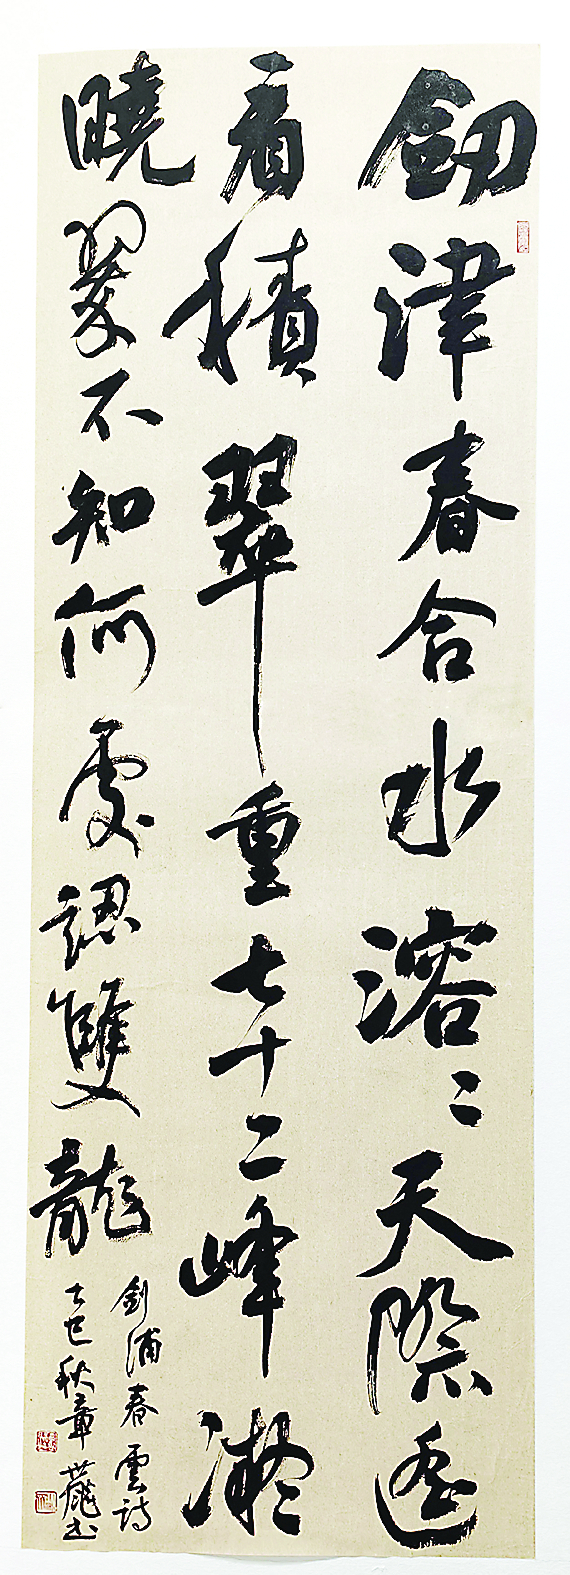 劔津春合水溶〻天際遥
看積翠重七十二峰凝
曉翠不知何處認雙龍
劍浦春雲詩
乙巳秋章